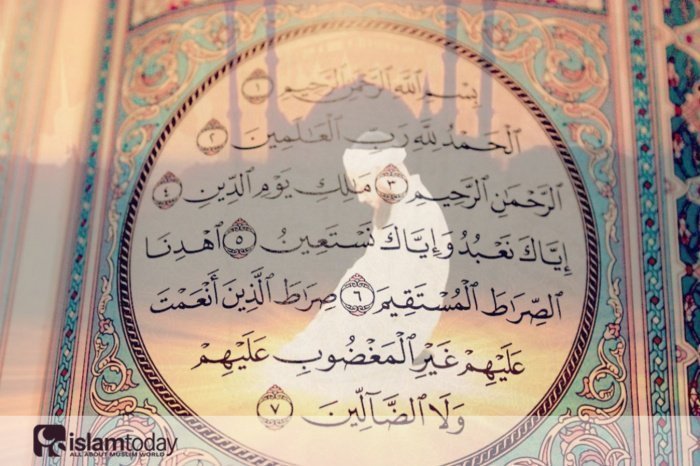 بِسْمِ ٱللَّهِ ٱلرَّحْمَٰنِ ٱلرَّحِيمِ ١
ٱلْحَمْدُ لِلَّهِ رَبِّ ٱلْعَٰلَمِينَ ٢
ٱلرَّحْمَٰنِ ٱلرَّحِيمِ ٣ مَٰلِكِ يَوْمِ ٱلدِّينِ ٤
إِيَّاكَ نَعْبُدُ وَإِيَّاكَ نَسْتَعِينُ ٥ ٱهْدِنَا
ٱلصِّرَٰطَ ٱلْمُسْتَقِيمَ ٦ صِرَٰطَ ٱلَّذِينَ أَنْعَمْتَ
عَلَيْهِمْ غَيْرِ ٱلْمَغْضُوبِ عَلَيْهِمْ
وَلَا ٱلضَّآلِّينَ ٧
islamtoday
ALL ABOUT MUSLIM WORLD